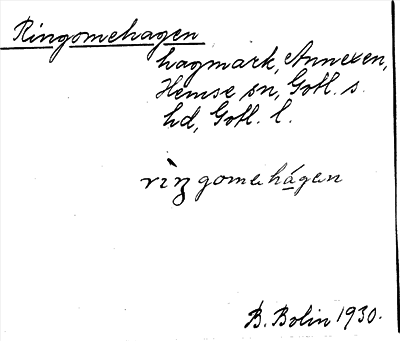 Ringomehagen
hagmark, Annexen,
Hemse sn, Gotl. s.
hd, Gotl. l.
rìŋgomehágen
B. Bolin 1930.